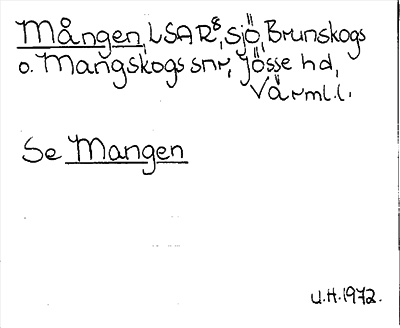 Mången, LSA R⁸, sjö, Brunskogs
o. Mangskogs snr, Jösse hd,
Värml.l.
Se Mangen
U.H. 1972.